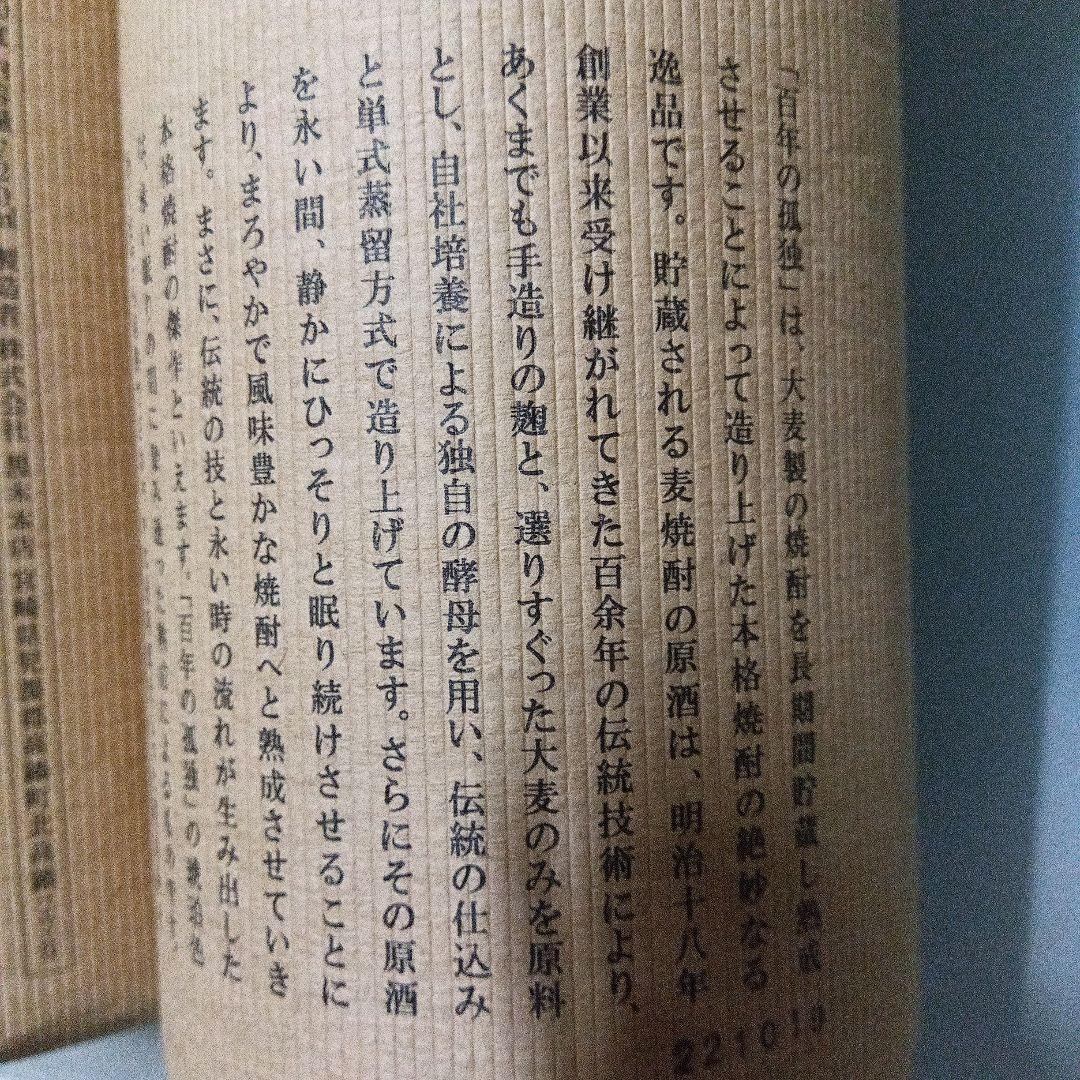 「百年の孤独」は、大麦製の焼酎を長期間貯蔵し熟成
させることによって造り上げた本格焼酎の絶妙なる
逸品です。貯蔵される麦焼酎の原酒は、明治十八年
創業以来受け継がれてきた百余年の伝統技術により、
あくまでも手造りの麹と、選りすぐった大麦のみを原料
とし、自社培養による独自の酵母を用い、伝統の仕込み
と単式蒸留方式で造り上げています。さらにその原酒
を永い間、静かにひっそりと眠り続けさせることに
より、まろやかで風味豊かな焼酎へと熟成させていき
ます。まさに、伝統の技と永い時の流れが生み出した
本格焼酎の傑作といえます。「百年の孤独」の琥珀色
は、永い眠りの間に
221019
製造者 株式会社 黒木本店 宮崎県児湯郡高鍋町北高鍋